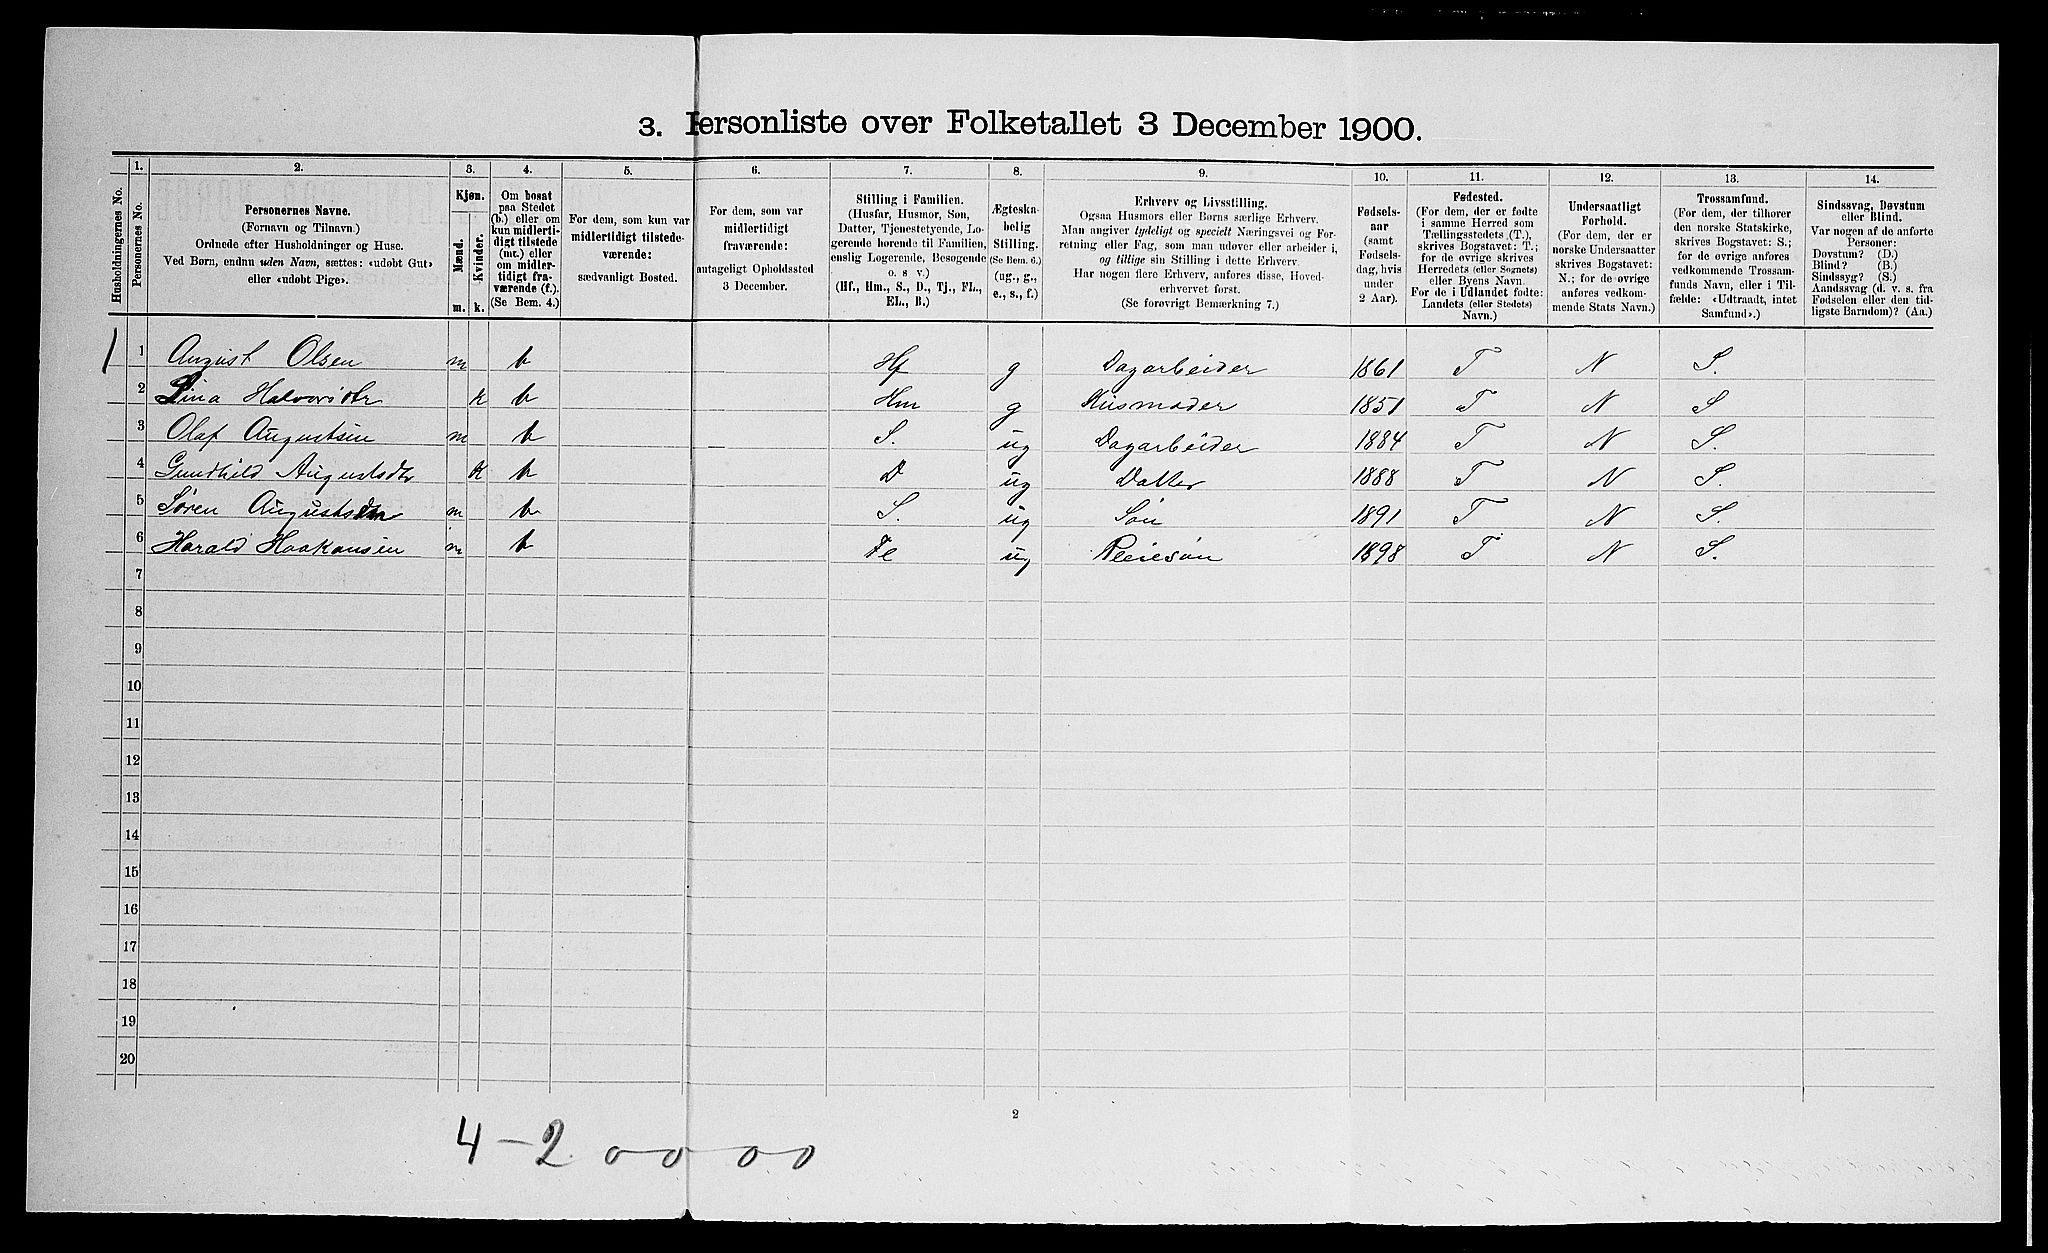 3. Personliste over Folketallet 3 December 1900.
1. 2. 3. 4. 5. 6. 7. 8. 9. 10. 11. 12. 13. 14.
Husholdningernes No.
Personernes No.
Personernes Navne.
(Fornavn og Tilnavn.)
Ordnede efter Husholdninger og Huse.
Ved Børn, endnu uden Navn, sættes: «udøbt Gut»
eller «udøbt Pige».
Kjøn.
Mænd.
Kvinder.
m. k.
Om bosat
paa Stedet
(b.) eller om
kun midlerti-
digt tilstede
(mt.) eller
om midler-
tidigt fra-
værende (f.).
(Se Bem. 4.)
For dem, som kun var
midlertidigt tilstede-
værende:
sædvanligt Bosted.
For dem, som var
midlertidigt
fraværende:
antageligt Opholdssted
3 December.
Stilling i Familien.
(Husfar, Husmor, Søn,
Datter, Tjenestetyende, Lo-
gerende hørende til Familien,
enslig Logerende, Besøgende
o. s v.)
(Hf., Hm., S., D., Tj., FL.,
EL., B.)
Ægteska-
belig
Stilling.
(Se Bem. 6.)
(ug., g.,
e., s., f.)
Erhverv og Livsstilling.
Ogsaa Husmors eller Børns særlige Erhverv.
Man angiver tydeligt og specielt Næringsvei og For-
retning eller Fag, som man udøver eller arbeider i,
og tillige sin Stilling i dette Erhverv.
Har nogen flere Erhverv, anføres disse, Hoved-
erhvervet først.
(Se forøvrigt Bemærkning 7.)
Fødsels-
aar
(samt
Fødsels-
dag, hvis
under
2 Aar).
Fødested.
(For dem, der er fødte
i samme Herred som
Tællingsstedets, (T.),
skrives Bogstavet: T.;
for de øvrige skrives
Herredets (eller Sognets)
eller Byens Navn.
For de i Udlandet fødte:
Landets (eller Stedets)
Navn.)
Undersaatligt
Forhold.
(For dem, der er
norske Undersaatter
skrives Bogstavet:
N.; for de øvrige
anføres vedkom-
mende Stats Navn.)
Trossamfund.
(For dem, der tilhører
den norske Statskirke,
skrives Bogstavet: S.;
for de øvrige anføres
vedkommende Trossam-
funds Navn, eller i Til-
fælde: «Udtraadt, intet
Samfund».)
Sindssvag, Døvstum
eller Blind.
Var nogen af de anførte
Personer:
Døvstum? (D.)
Blind? (B.)
Sindssyg? (S.)
Aandssvag (d. v. s. fra
Fødselen eller den tid-
ligste Barndom)? (Aa.)
1 1 August Olsen m b Hf g Dagarbeider 1861 T N S.
2 Lina Halvorsdtr k b Hm g Husmoder 1851 T N S
3 Olaf Augustsen m b S. ug Dagarbeider 1884 T N S.
4 Gundhild Augustsdtr k b D ug Datter 1888 T N S.
5 Søren Augustsen m b S. ug Søn 1891 T N S.
6 Harald Haakonsen m b ug Pleiesøn 1898 T N S.
7
8
9
10
11
12
13
14
15
16
17
18
19
20
2
4 – 2 0 0 0 0